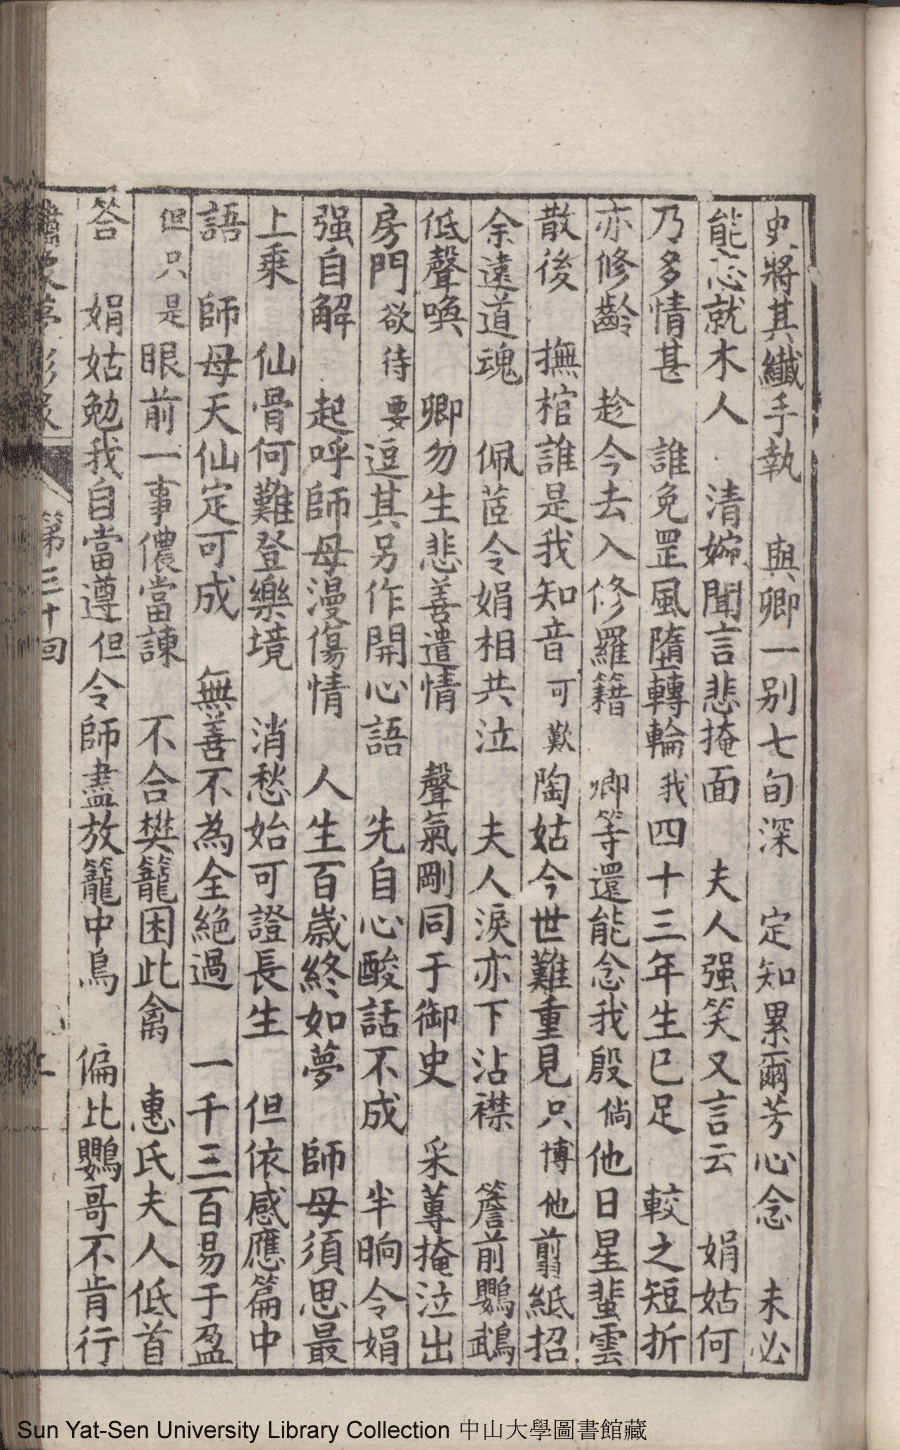 史將其纖手執　與卿一别七旬深　定知累爾芳心念　未必
能忘就木人　清婉聞言悲掩面　夫人强笑又言云　娟姑何
乃多情甚　誰免罡風墮轉輪我四十三年生已足　較之短折
亦修齡　趁今去入修羅籍　卿等還能念我殷倘他日星輩雲
散後　撫棺誰是我知音可歎陶姑今世難重見只博他剪紙招
余遠道魂　佩茝令娟相共泣　夫人淚亦下沾襟　簷前鸚鵡
低聲喚　卿勿生悲善遣情　聲氣剛同于御史　采蓴掩泣出
房門欲待要逗其另作開心語　先自心酸話不成　半晌令娟
强自解　起呼師母漫傷情　人生百歲終如夢　師母須思最
上乘　仙骨何難登樂境　消愁始可證長生　但依感應篇中
語　師母天仙定可成　無善不為全絕過　一千三百易于盈
但只是眼前一事儂當諫　不合樊籠困此禽　惠氏夫人低首
答　娟姑勉我自當遵但令師盡放籠中鳥　偏比鸚哥不肯行
第三十回
Sun Yat-Sen University Library Collection 中山大學圖書館藏